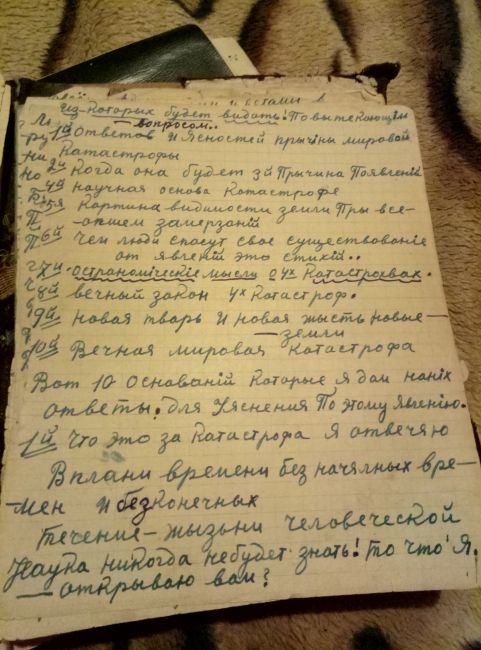 из-которых будет видать: По вытекающем
вопросом..
1й ответов и Ясностей прычіны мировой
Катастрофы
2й Когда она будет 3й Прычина Появленій
4й научная основа Катастрофе
5я Картина видимости земли Пры все-
-опшем замерзаній
6й Чем люди спасут свое существованіе
от явленій это стихій..
7й. остраномическіе мысли о 4х Катастроевах.
8й вечный закон 4х Катастроф.
9й новая тварь и новая жысть новые-
-земли
10й Вечная мировая Катастрофа
Вот 10 Основаній Которые я дам наніх
ответы. для Уяснения По этому Явленію.
1й Что это за Катастрофа я отвечяю
В плани времени без начялных вре-
-мен и безконечных
течение-жызьни человеческой
Наука никогда небудет знать! то что Я.
-открываю вам?